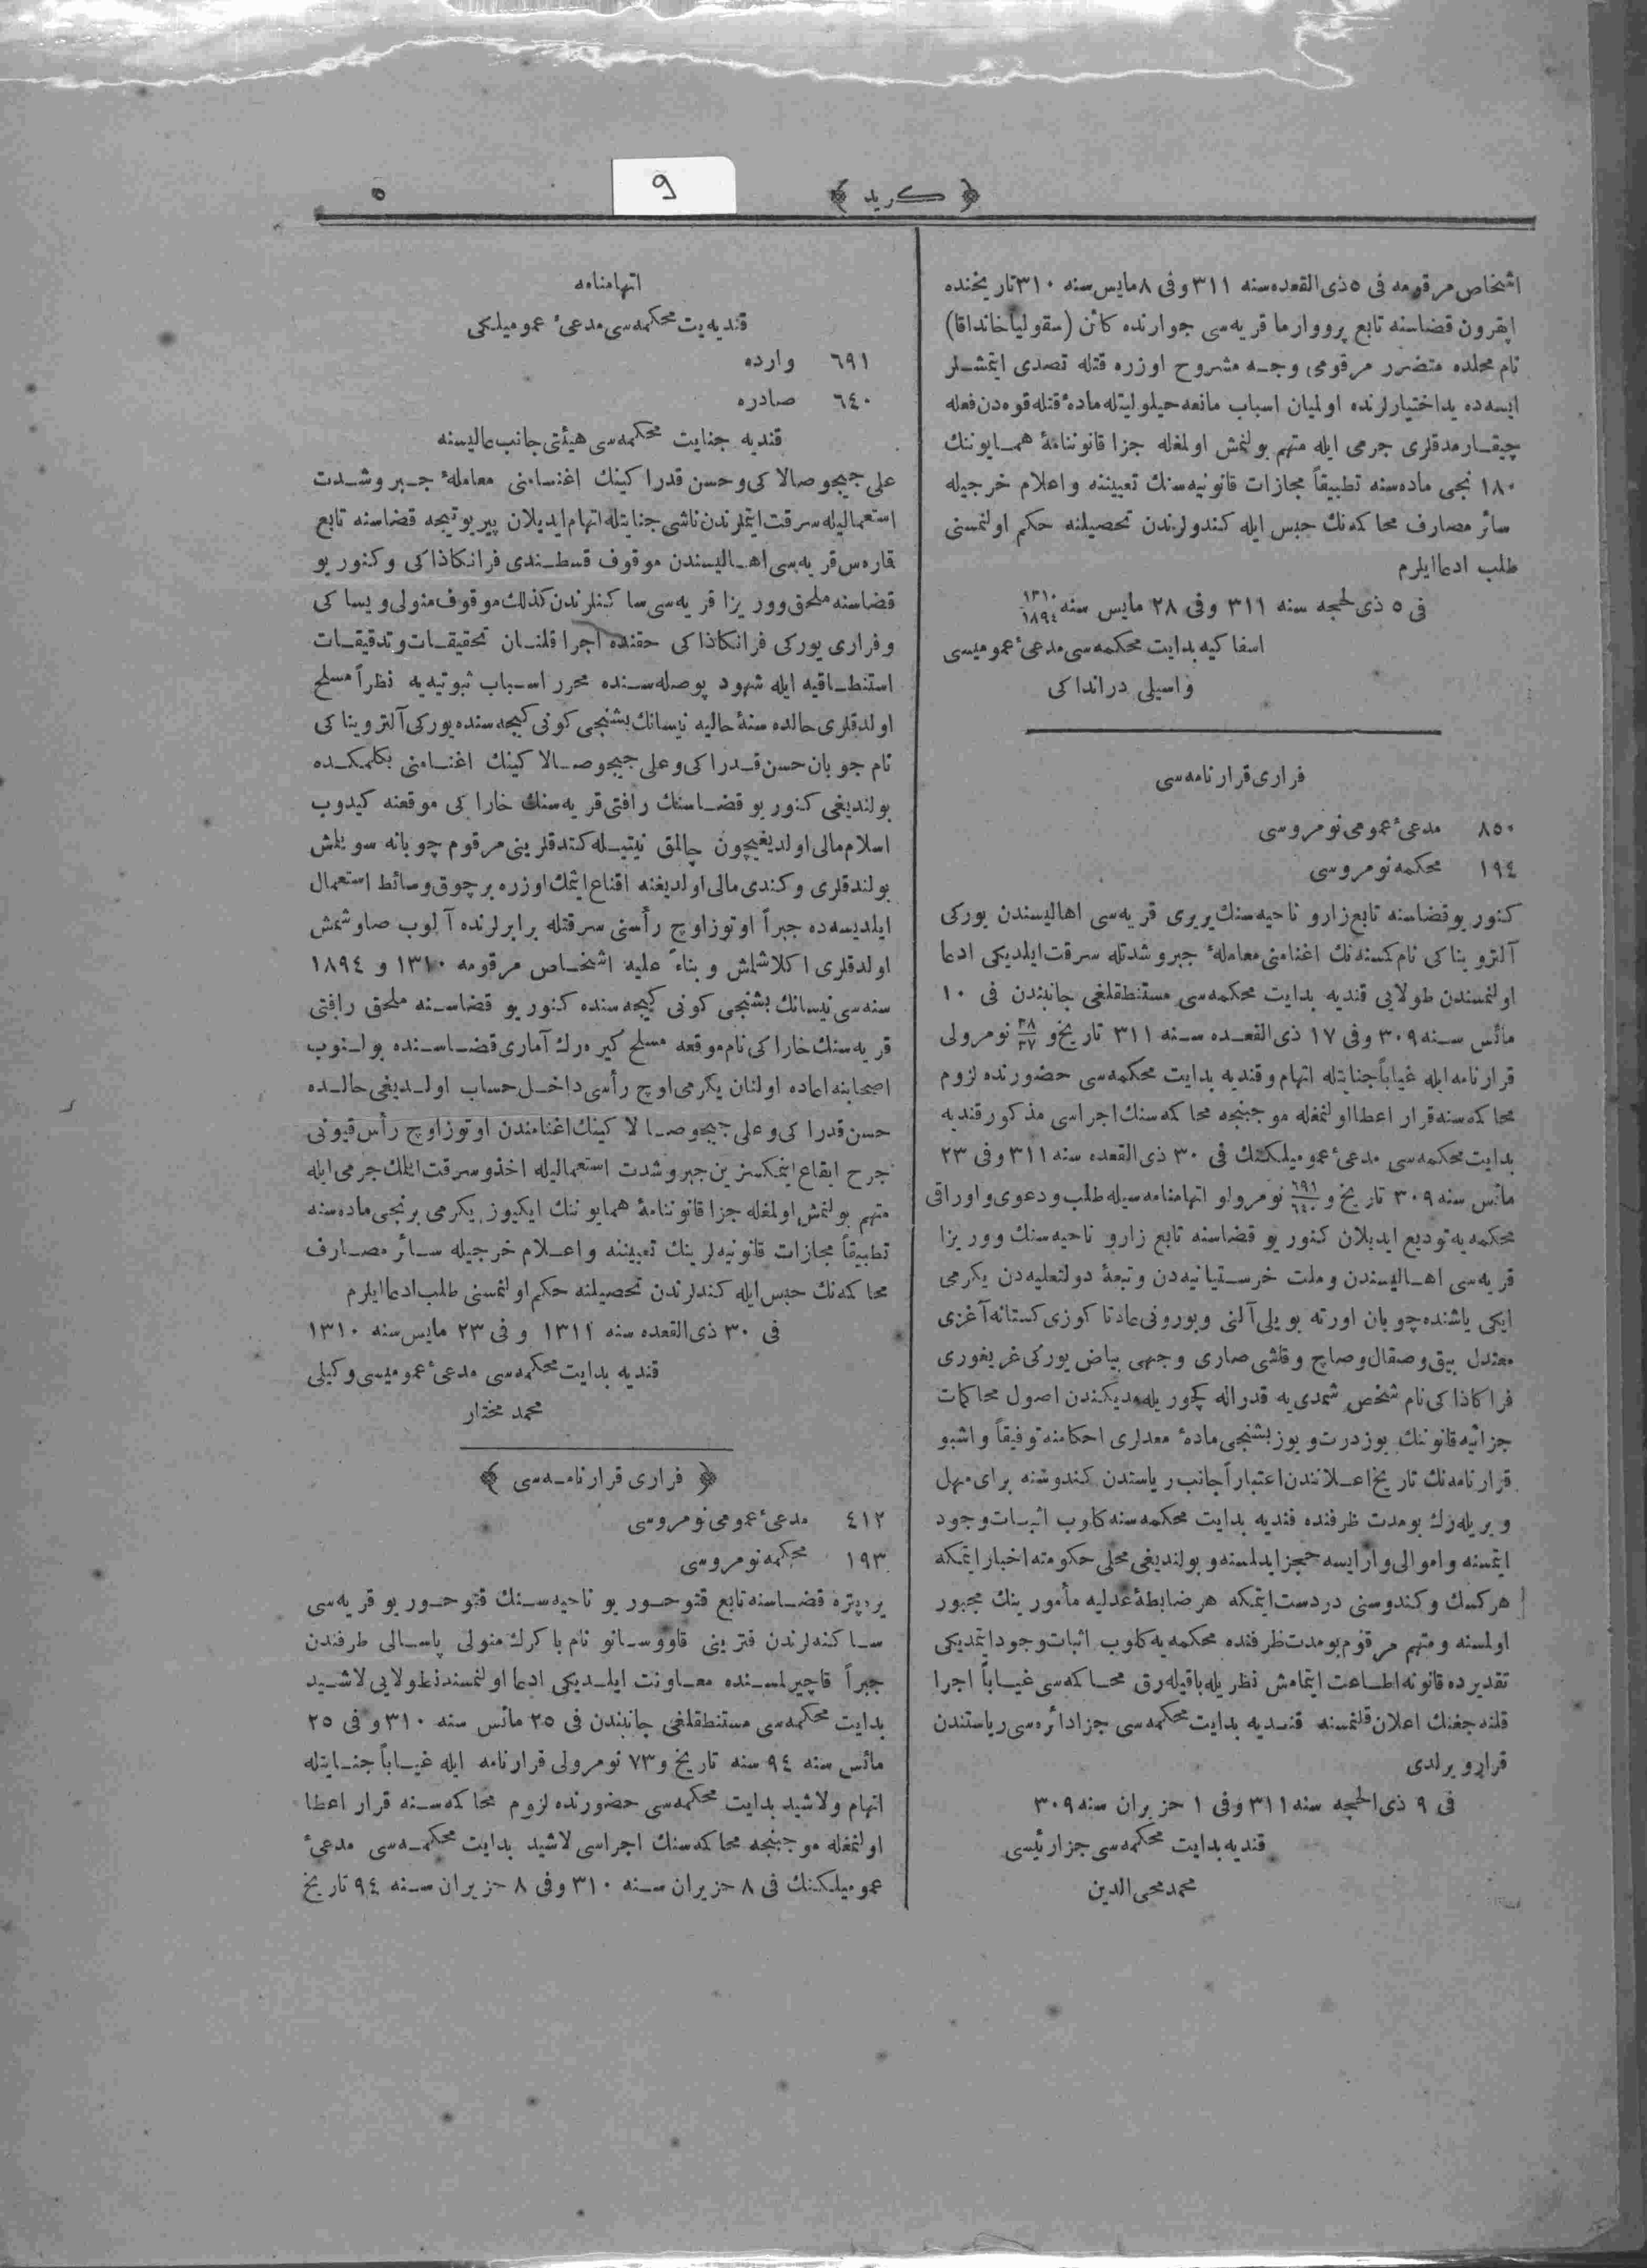 ٥
9
﴿ كريد ﴾
اشخاص مرقومه فى ٥ ذى القعده سنه ٣١١ وفى ٨ مايس سنه ٣١٠ تاريخنده
اپقرون قضاسنه تابع پرووارما قريه‌سى جوارنده كائن (سقوليا خانداقا)
نام محلده متضرر مرقومى وجه مشروح اوزره قتله تصدى ايتمشلر
ايسه‌ده يد اختيارلرنده اولميان اسباب مانعه حيلولتيله ماده‌ٔ قتله قوه‌دن فعله
چيقارمدقلرى جرمى ايله متهم بولنمش اولمغله جزا قانوننامهٔ همايوننك
١٨٠ نجى ماده‌سنه تطبيقاً مجازات قانونيه‌سنك تعييننه واعلام خرجيله
سائر مصارف محاكمه‌نك حبس ايله كندولرندن تحصيلنه حكم اولنمسنى
طلب ادعا ايلرم
فى ٥ ذى الحجه سنه ٣١١ وفى ٢٨ مايس سنه ١٣١٠ ١٨٩٤
اسفاكيه بدايت محكمه‌سى مدعىٔ عموميسى
واسيلى درانداكى
فرارى قرارنامه‌سى
٨٥٠ مدعىٔ عمومى نومروسى
١٩٤ محكمه نومروسى
كنوريو قضاسنه تابع زارو ناحيه‌سنك بربرى قريه‌سى اهاليسندن يوركى
آلترويناكى نام كمسنه‌نك اغنامنى معاملهٔ جبر و شدتله سرقت ايلديكى ادعا
اولنمسندن طولايى قنديه بدايت محكمه‌سى مستنطقلغى جانبندن فى ١٠
مائس سنه ٣٠٩ وفى ١٧ ذى القعده سنه ٣١١ تاريخ و ٣٨ ٢٧ نومرولى
قرارنامه ايله غياباً جنايتله اتهام وقنديه بدايت محكمه‌سى حضورنده لزوم
محاكمه‌سنه قرار اعطا اولنمغله موجبنجه محاكمه‌سنك اجراسى مذكور قنديه
بدايت محكمه‌سى مدعىٔ عموميلكنك فى ٣٠ ذى القعده سنه ٣١١ وفى ٢٣
مائس سنه ٣٠٩ تاريخ و ٦٩١ ٦٤٠ نومرولو اتهامنامه‌سيله طلب ودعوى واوراقى
محكمه‌يه توديع ايديلان كنوريو قضاسنه تابع زارو ناحيه‌سنك ووريزا
قريه‌سى اهاليسندن وملت خرستيانيه‌دن وتبعهٔ دولتعليه‌دن يكرمى
ايكى ياشنده چوبان اورته بويلى آلنى وبورونى عادتا كوزى كستانه آغزى
معتدل بيق وصقال وصاچ وقاشى صارى وجهى بياض يوركى غريغورى
فراكاذاكى نام شخص شمدى‌يه قدر اله كچوريله‌مديكندن اصول محاكمات
جزائيه قانوننك يوز درت و يوز بشنجى مادهٔ معدلرى احكامنه توفيقاً واشبو
قرارنامه‌نك تاريخ اعلانندن اعتباراً جانب رياستدن كندوسنه براى مهل
ويريله‌رك بو مدت ظرفنده قنديه بدايت محكمه‌سنه كلوب اثبات وجود
ايتمسنه واموالى وار ايسه حجز ايدلمسنه و بولنديغى محلى حكومته اخبار ايتمكه
هركسك وكندوسنى دردست ايتمكه هر ضابطهٔ عدليه مأمورينك مجبور
اولمسنه ومتهم مرقوم بو مدت ظرفنده محكمه‌يه كلوب اثبات وجود ايتمديكى
تقديرده قانونه اطاعت ايتمامش نظريله باقيله‌رق محاكمه‌سى غياباً اجرا
قلنه‌جغنك اعلان قلنمسنه قنديه بدايت محكمه‌سى جزا دائره‌سى رياستندن
قرار ويرلدى
فى ٩ ذى الحجه سنه ٣١١ وفى ١ حزيران سنه ٣٠٩
قنديه بدايت محكمه‌سى جزا رئيسى
محمد محى الدين
اتهامنامه
قنديه بدايت محكمه‌سى مدعىٔ عموميلكى
٦٩١ وارده
٦٤٠ صادره
قنديه جنايت محكمه‌سى هيئتى جانب عاليسنه
على جيجوصالاكى وحسن قدراكينك اغنامنى معاملهٔ جبر وشدت
استعماليله سرقت ايتملرندن ناشى جنايتله اتهام ايديلان پيريوتيجه قضاسنه تابع
قاره‌س قريه‌سى اهاليسندن موقوف قسطندى فرانكاذاكى وكنوريو
قضاسنه ملحق ووريزا قريه‌سى ساكنلرندن كذلك موقوف منولى ويساكى
وفرارى يوركى فرانكاذاكى حقنده اجرا قلنان تحقيقات وتدقيقات
استنطاقيه ايله شهود پوصله‌سنده محرر اسباب ثبوتيه‌يه نظراً مسلح
اولدقلرى حالده سنهٔ حاليه نيسانك بشنجى كونى كيجه‌سنده يوركى آلترويناكى
نام چوبان حسن قدراكى وعلى جيجوصالاكينك اغنامنى بكلمكده
بولنديغى كنوريو قضاسنك رافتى قريه‌سنك خاراكى موقعنه كيدوب
اسلام مالى اولديغيچون چالمق نيتيله كتدقلرينى مرقوم چوبانه سويلمش
بولندقلرى وكندى مالى اولديغنه اقناع ايتمك اوزره برچوق وسائط استعمال
ايلديسه‌ده جبراً اوتوز اوچ رأسنى سرقتله برابرلرنده آلوب صاوشمش
اولدقلرى اكلاشلمش و بناءً عليه اشخاص مرقومه ١٣١٠ و ١٨٩٤
سنه‌سى نيسانك بشنجى كونى كيجه‌سنده كنوريو قضاسنه ملحق رافتى
قريه‌سنك خاراكى نام موقعه مسلح كيره‌رك آمارى قضاسنده بولنوب
اصحابنه اعاده اولنان يكرمى اوچ رأسى داخل حساب اولديغى حالده
حسن قدراكى وعلى جيجوصالاكينك اغنامندن اوتوز اوچ رأس قيونى
جرح ايقاع ايتمكسزين جبر وشدت استعماليله اخذ وسرقت ايتمك جرمى ايله
متهم بولنمش اولمغله جزا قانوننامهٔ همايوننك ايكيوز يكرمى برنجى ماده‌سنه
تطبيقاً مجازات قانونيه‌لرينك تعييننه واعلام خرجيله سائر مصارف
محاكمه‌نك حبس ايله كندلرندن تحصيلنه حكم اولنمسنى طلب ادعا ايلرم
فى ٣٠ ذى القعده سنه ١٣١١ وفى ٢٣ مايس سنه ١٣١٠
قنديه بدايت محكمه‌سى مدعىٔ عموميسى وكيلى
محمد مختار
﴿ فرارى قرارنامه‌سى ﴾
٤١٢ مدعىٔ عمومى نومروسى
١٩٣ محكمه نومروسى
يره‌پتره قضاسنه تابع قتوحوريو ناحيه‌سنك قتوحوريو قريه‌سى
ساكنه‌لرندن قترينى قاووسانو نام باكرك منولى پاسالى طرفندن
جبراً قاچيرلمسنده معاونت ايلديكى ادعا اولنمسندن طولايى لاشيد
بدايت محكمه‌سى مستنطقلغى جانبندن فى ٢٥ مائس سنه ٣١٠ وفى ٢٥
مائس سنه ٩٤ سنه تاريخ و ٧٣ نومرولى قرارنامه ايله غياباً جنايتله
اتهام ولاشيد بدايت محكمه‌سى حضورنده لزوم محاكمه‌سنه قرار اعطا
اولنمغله موجبنجه محاكمه‌سنك اجراسى لاشيد بدايت محكمه‌سى مدعىٔ
عموميلكنك فى ٨ حزيران سنه ٣١٠ وفى ٨ حزيران سنه ٩٤ تاريخ